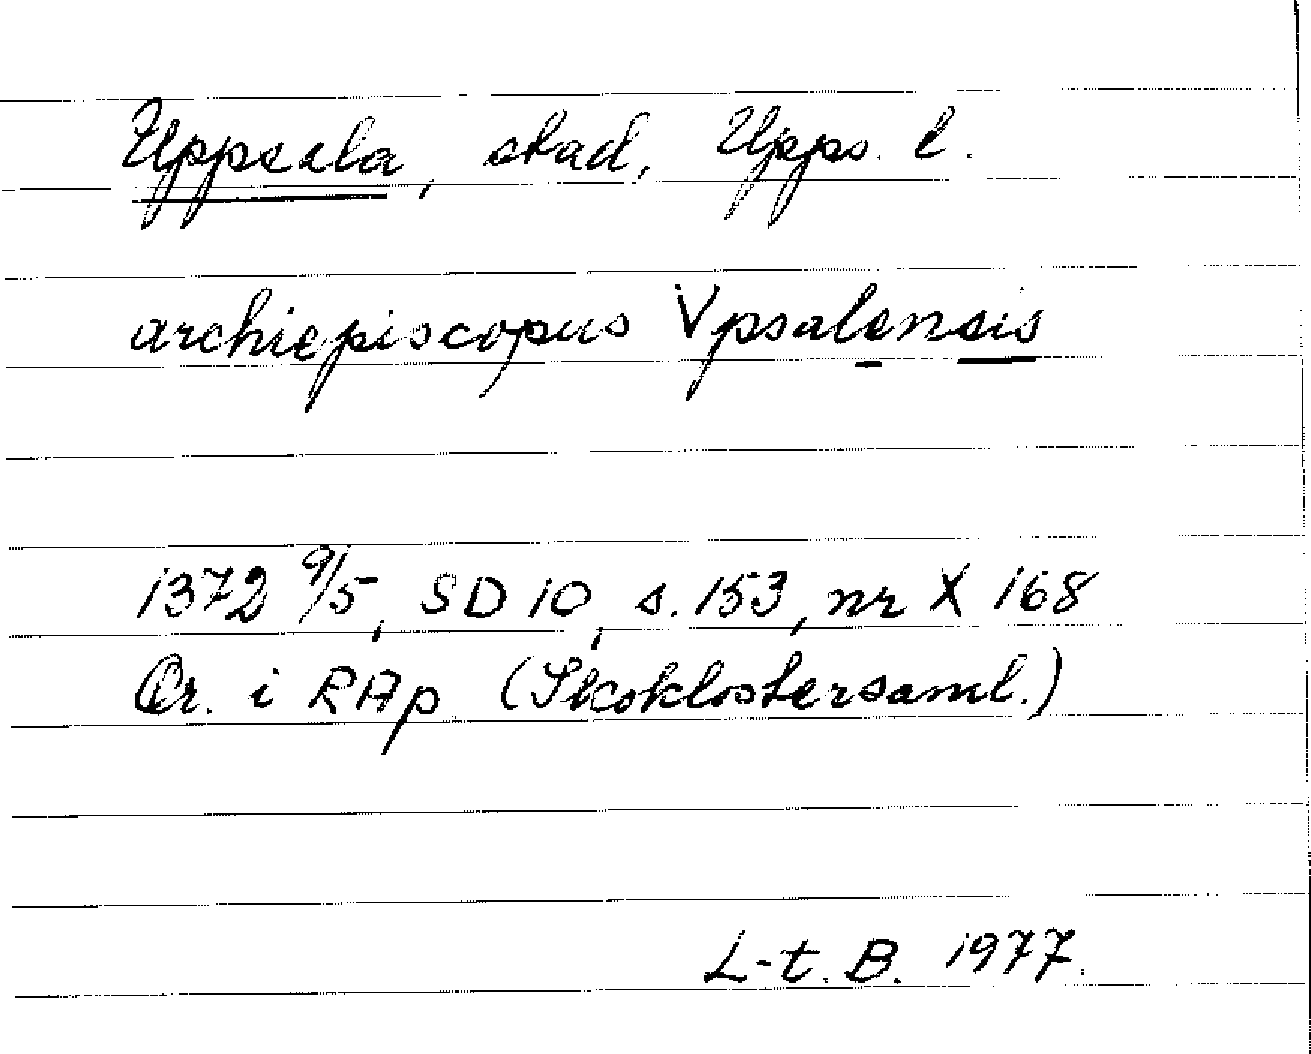 Uppsala, stad, Upps. l.
archiepiscopus Vpsalensis
1372 9/5, SD 10, s. 153, nr X 168
Or. i RAp (Skoklostersaml.)
L-t. B. 1977.